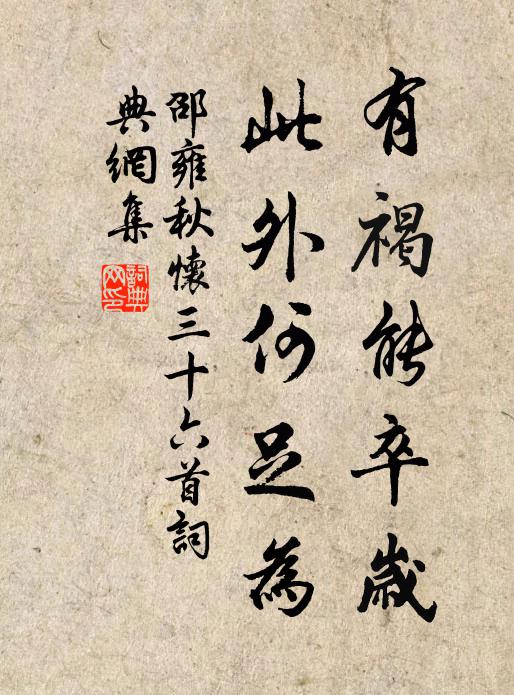 有褐能卒歲
此外何足為
邵雍秋懷三十六首詞
典網集
詞典網印